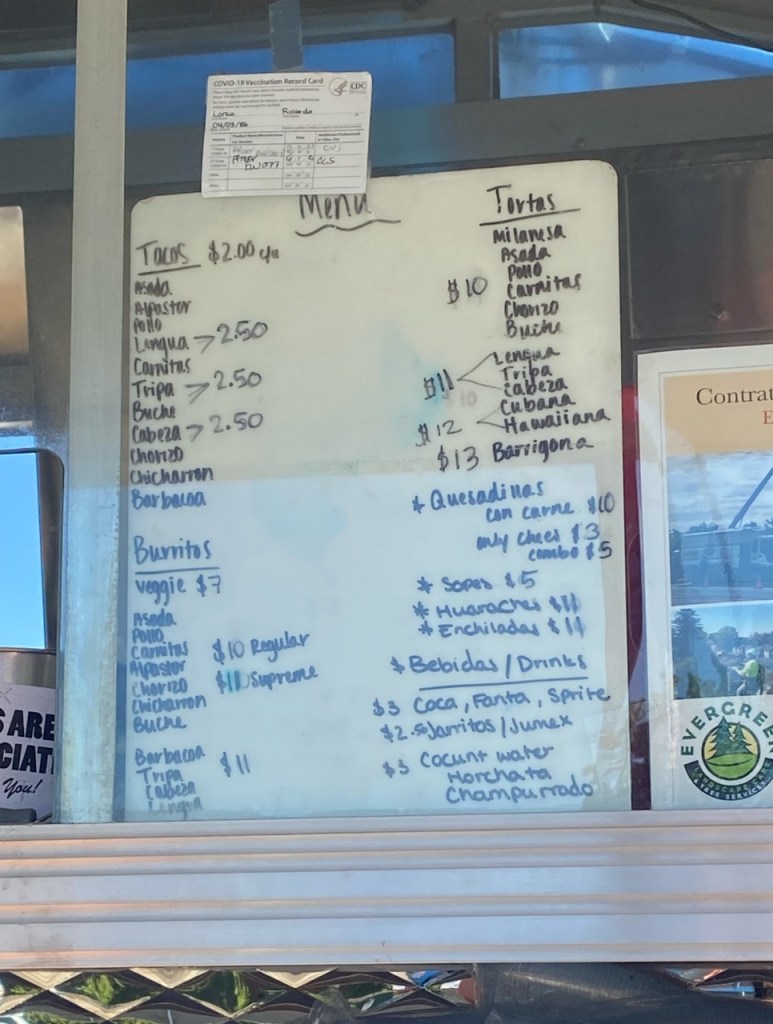 COVID-19 Vaccination Record Card
CDC
04/03/86
Menu
Tacos $2.00 c/u
Asada
Alpastor
Pollo
Lengua > 2.50
Carnitas
Tripa > 2.50
Buche
Cabeza > 2.50
Chorizo
Chicharron
Barbacoa
Burritos
Veggie $7
Asada
Pollo
Carnitas $10 Regular
Alpastor
Chorizo $11 Supreme
Chicharron
Buche
Barbacoa
Tripa $11
Cabeza
Lengua
Tortas
Milanesa
Asada
Pollo
$10 Carnitas
Chorizo
Buche
Lengua
$11 Tripa
Cabeza
Cubana
$12 Hawaiiana
$13 Barrigona
* Quesadillas
con carne $10
only chees $3
combo $5
* Sopes $5
* Huaraches $11
* Enchiladas $11
* Bebidas/Drinks
$3 Coca, Fanta, Sprite
$2.50 Jarritos/Jumex
$3 Cocunt water
Horchata
Champurrado
Contrat
E
EVERGREE
TREE SERVICES
S ARE
CIAT
You!